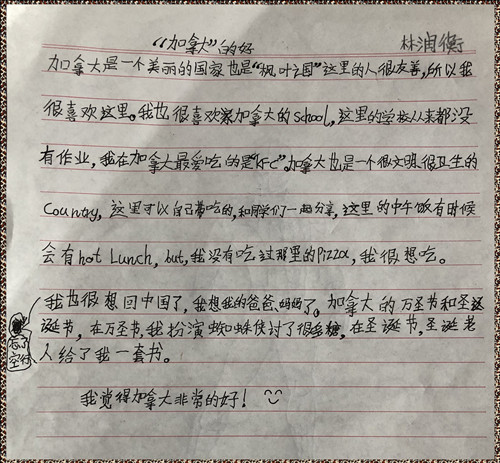 “加拿大”的好
林润衡
加拿大是一个美丽的国家也是“枫叶之国”这里的人很友善,所以我
很喜欢这里。我也很喜欢加拿大的school,这里的学校从来都没
有作业,我在加拿大最爱吃的是“kfc”。加拿大也是一个很文明、很卫生的
Country,这里可以自己带吃的,和同学们一起分享,这里的中午饭有时候
会有hot Lunch,but,我没有吃过那里的Pizza,我很想吃。
我也很想回中国了,我想我的爸爸、妈妈了。加拿大的万圣书和圣
诞节,在万圣书,我扮演蜘蛛侠讨了很多糖,在圣诞节,圣诞老
人给了我一套书。
忘了
空行
我觉得加拿大非常的好!